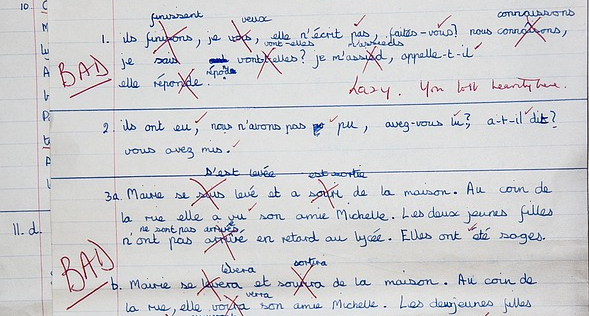 10.
finissent veux connaissons
1. ils finissons, je vois, elle n'écrit pas, faites-vous? nous connaissons,
vont-elles m'assieds
je sais vont-elles? je m'assied, appelle-t-il
BAD
répond
elle réponde.
Lazy. You lost heavily here.
2. ils ont eu, nous n'avons pas pu, avez-vous lu? a-t-il dit?
vous avez mis.
s'est levée est sortie
3a. Marie se levé et a de la maison. Au coin de
la rue elle a vu son amie Michelle. Les deux jeunes filles
ne sont pas arrivés
n'ont pas arrivé en retard au lycée. Elles ont été sages.
11. d.
BAD
lèvera sortira
b. Marie se de la maison. Au coin de
verra
la rue, elle voira son amie Michelle. Les deux jeunes filles